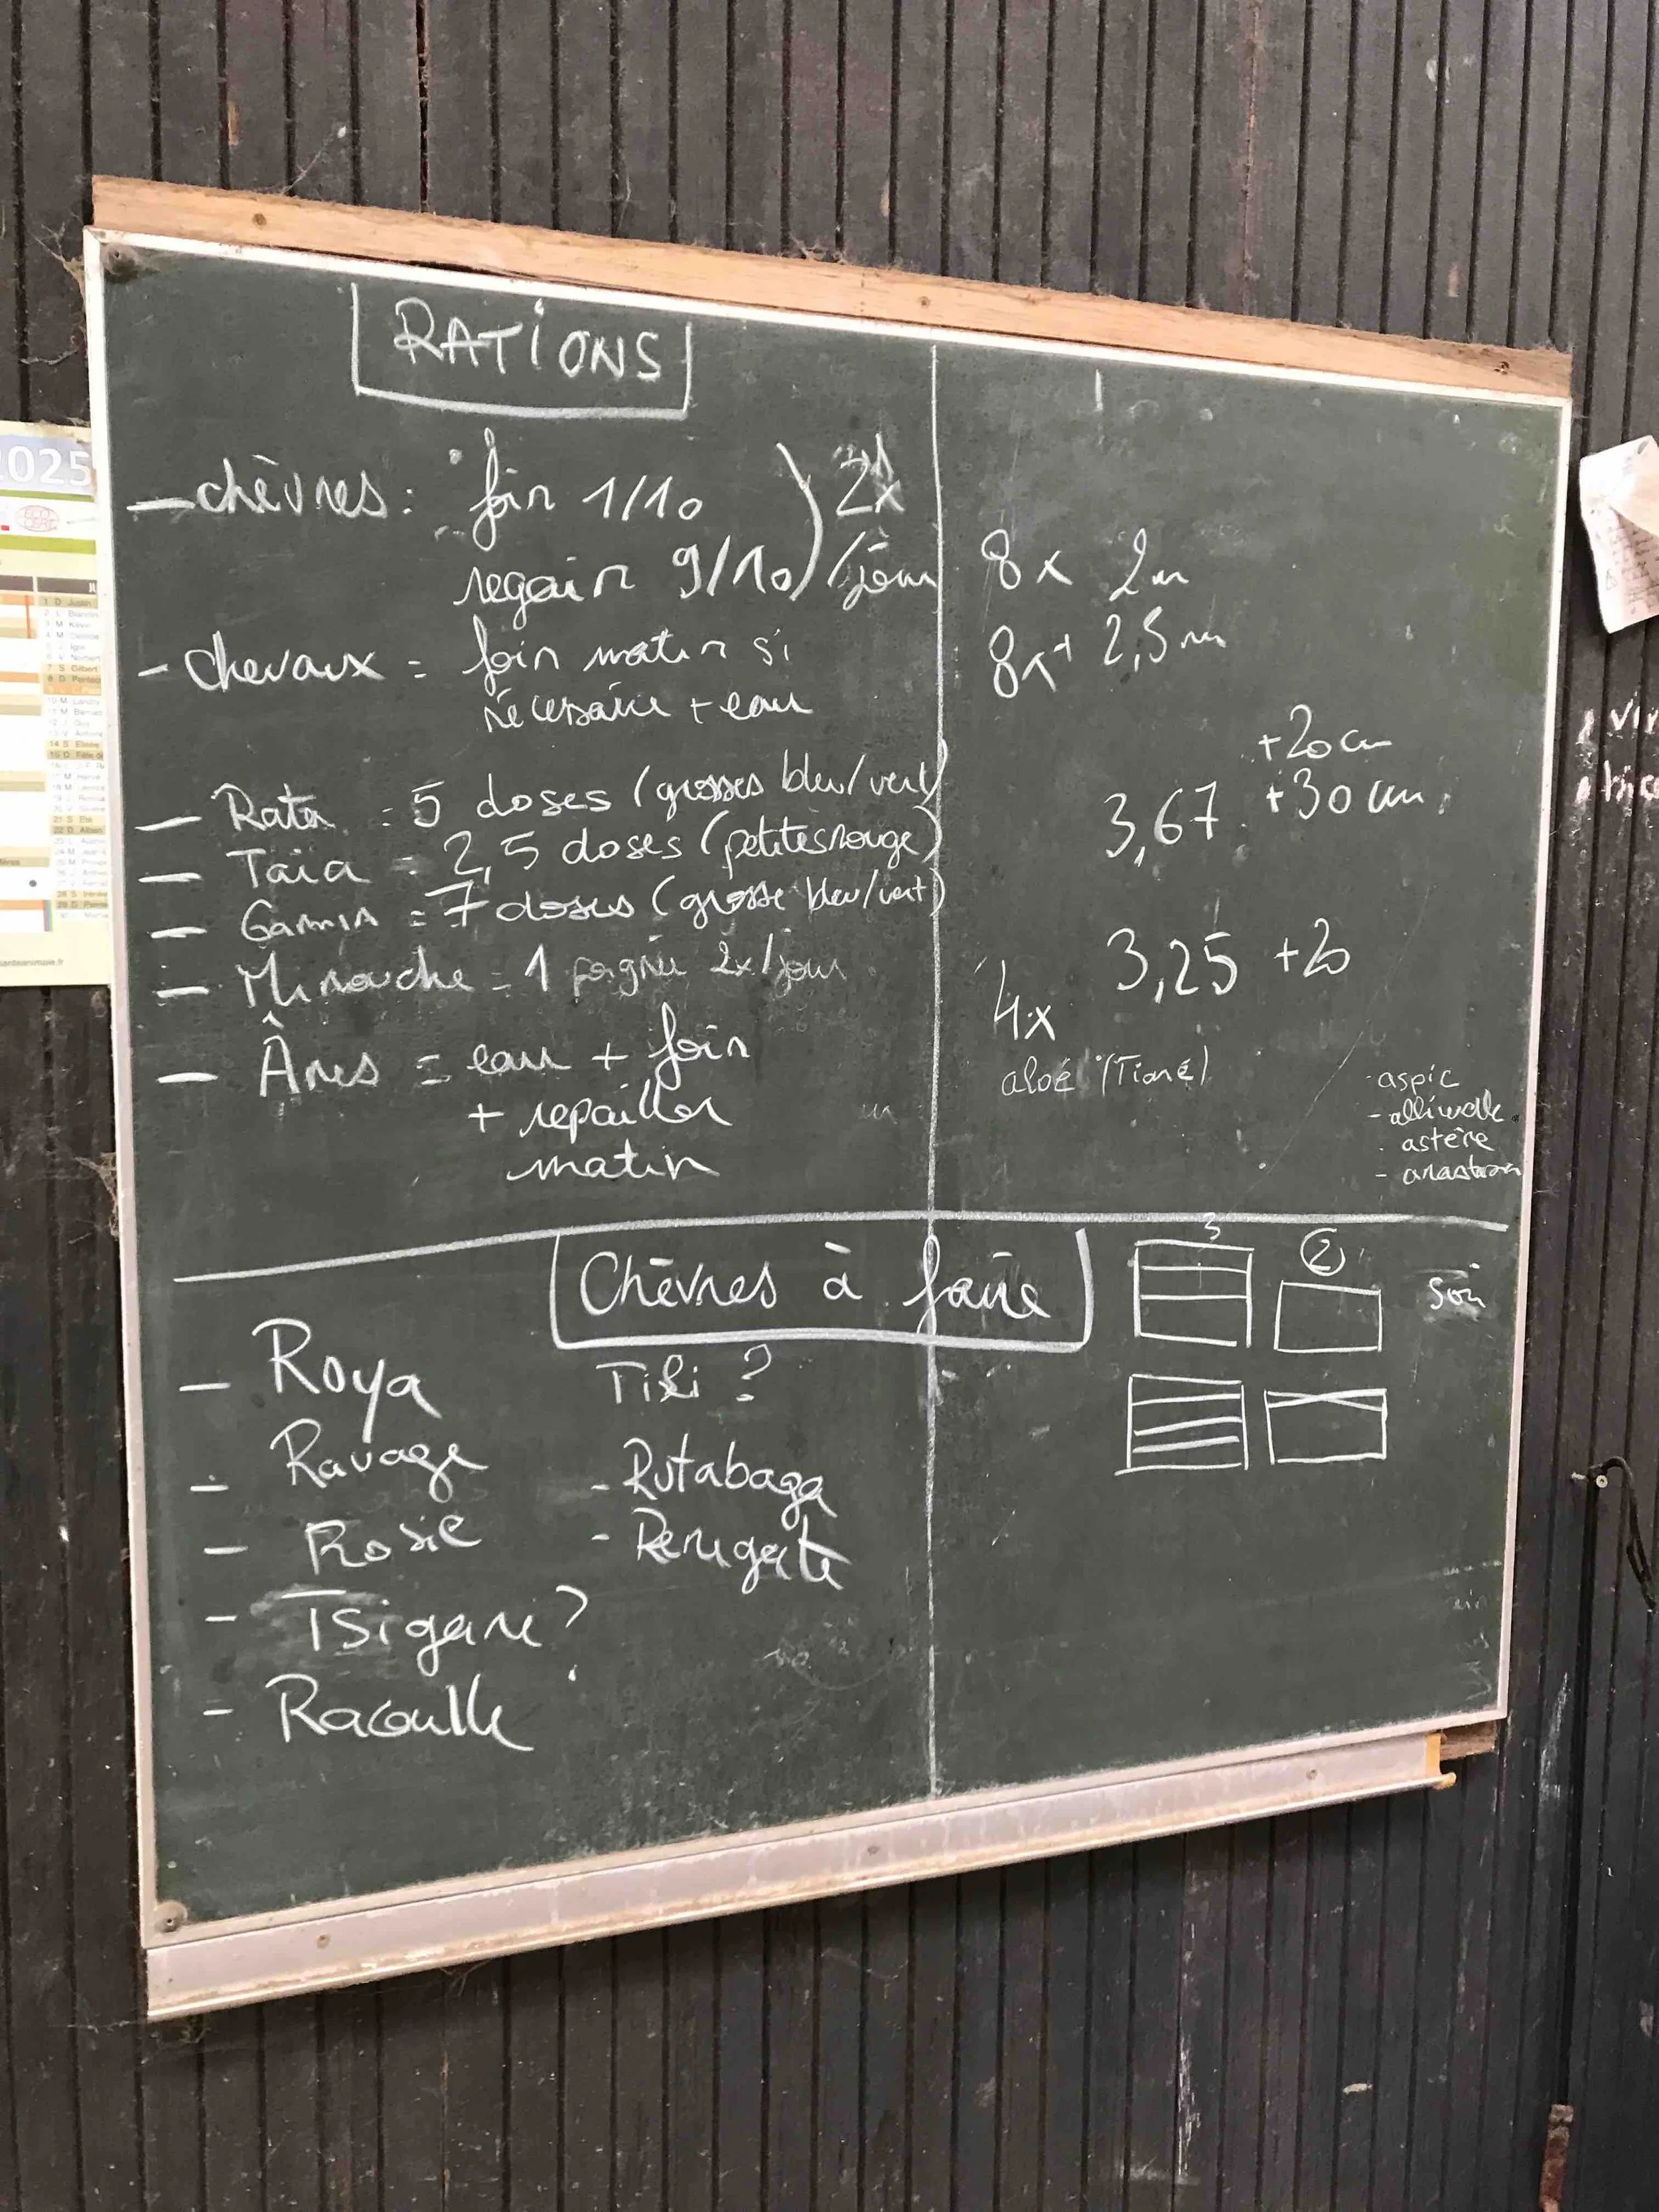 RATIONS
- chèvres : foin 1/10 ) 2x
regain 9/10 ) /jour
- chevaux = foin matin si
nécessaire + eau
- Rata = 5 doses (grosses bleu/vert)
- Taïa = 2,5 doses (petites rouge)
- Gamin = 7 doses (grosse bleu/vert)
- Minouche = 1 poignée 2x/jour
- Ânes = eau + foin
+ repailler
matin
8x 2m
8x 2,5m
+20 cm
3,67 +30 cm
3,25 +20
4x
aloé (Tiaré)
- aspic
- astère
Chèvres à faire
3
2
soin
- Roya
Tiki ?
- Ravage
- Rutabaga
- Rosie
- Renégate
- Tsigane ?
- Racaille
2025